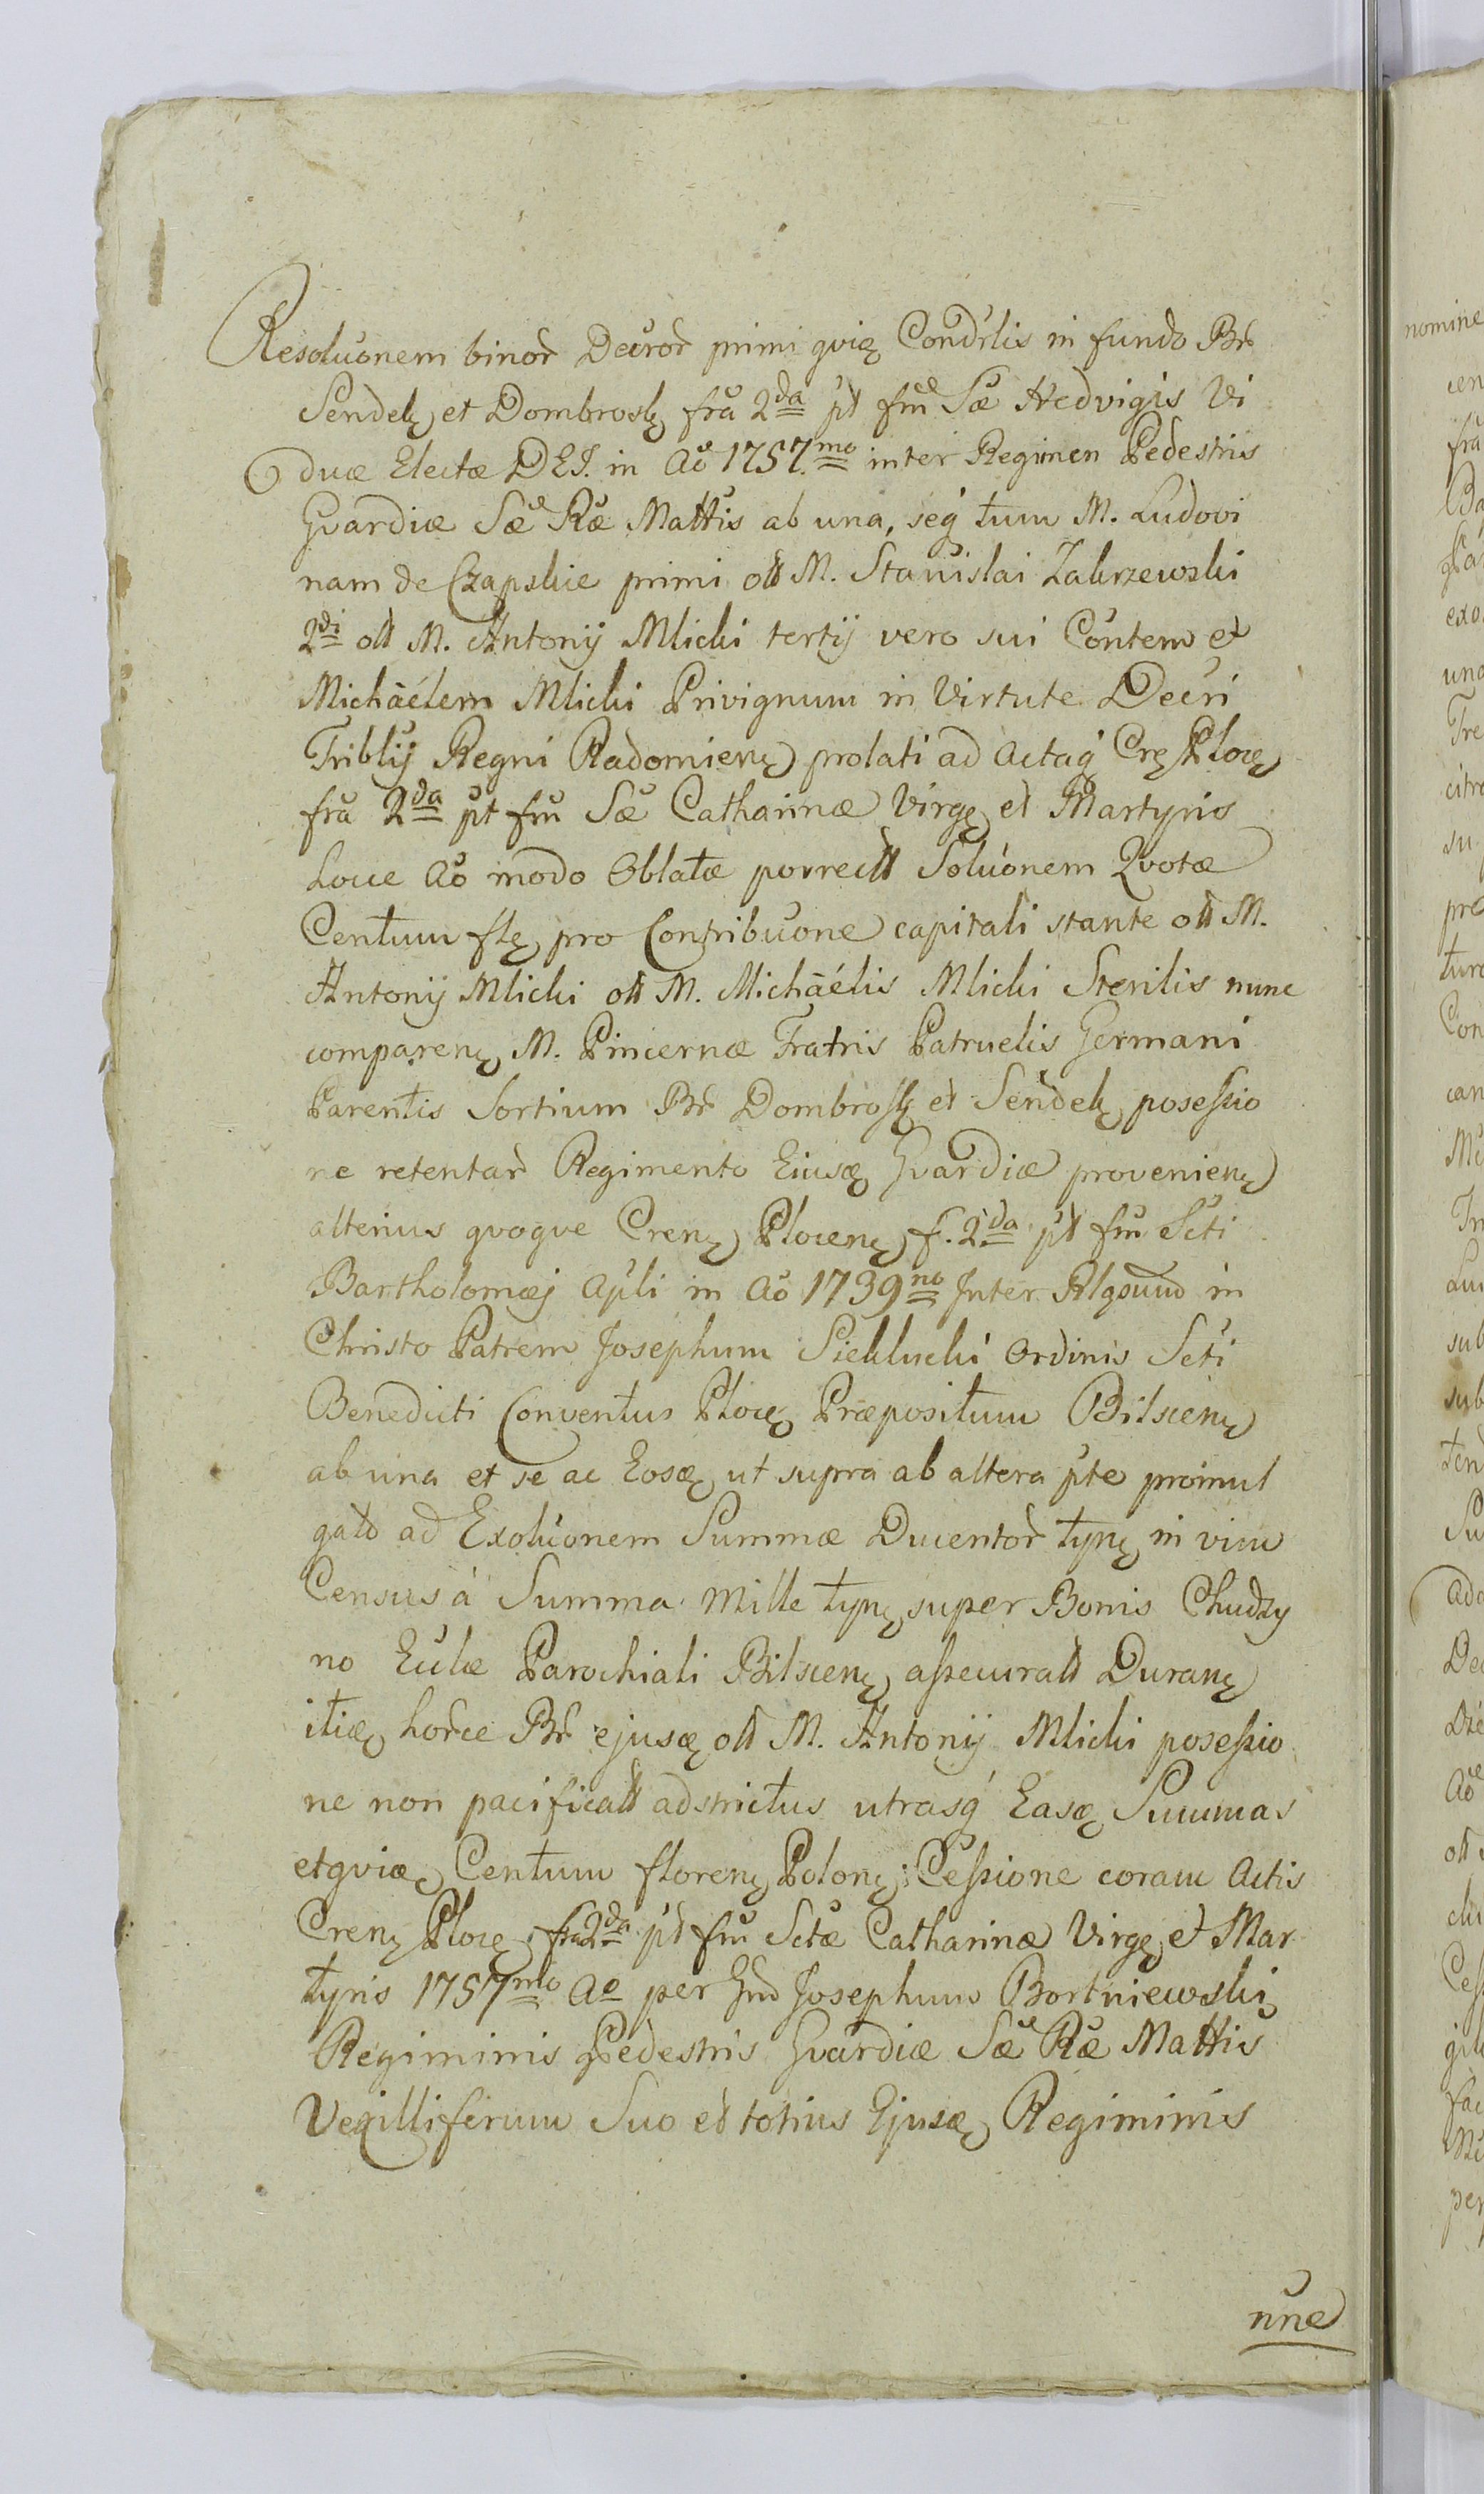 Resoluonem binor Decror primi qviq Condrlis in fundo Br
Sendek et Dombrosk fra 2da pt fm Sæ Hedvigis Vi
duæ Electæ DEI. in Ao 1757.mo inter Regimen Pedestris
Gvardiæ Sæ Ræ Mattis ab una, seq tum M. Ludovi
nam de Czapskie primi olt M. Stanislai Zakrzewski
2di olt M. Antonij Mlicki tertij vero sui Contem et
Michàélem Mlicki Privignum in Virtute Decri
Triblij Regni Radomien prolati ad actaq Crę Plocę
fra 2da pt fm Sæ Catharinæ Virgę et Martyris
hocce Ao modo Oblatæ porrectt Soluonem Qvotæ
Centum flę pro Contribuone capitali stante olt M.
Antonij Mlicki olt M. Michàélis Mlicki Sterilis nunc
comparenę M. Pincernæ Fratris Patruelis Germani
Parentis Sortium Br Dombrosk et Sendek posessio
ne retentar Regimento Eiusq Gvardiæ provenienę
alterius qvoqve Crenę Plocenę f. 2da pt fm Scti
Bartholomæj Apli in Ao 1739no Inter Rlgsund in
Christo Patrem Josephum Siekłucki Ordinis Scti
Benedicti Conventus Plocę Præpositum Bilscenę
ab una et se ac Eosq ut supra ab altera pte promul
gato ad Exoluonem Summæ Ducentor tynę in vim
Census á Summa Mille tynę super Bonis Chudzy
no Eclæ Parochiali Bilscenę assecuratt Duranę
itiq horce Br ejusq olt M. Antonij Mlicki posessio
ne non pacificatt adstrictus utrasq Easq Summas
etqviq Centum florenę Polonę: Cessione coram Actis
Crenę Plocę fra 2da pt fm Sctæ Catharinæ Virgę et Mar
tyris 1757mo Ao per Gnd Josephum Bortniewski
Regiminis Pedestris Gvardiæ Sæ Ræ Mattis
Vexilliferum Suo et totius Ejusq Regiminis
nne
nomine
fra
exo
una
Tre
citra
su